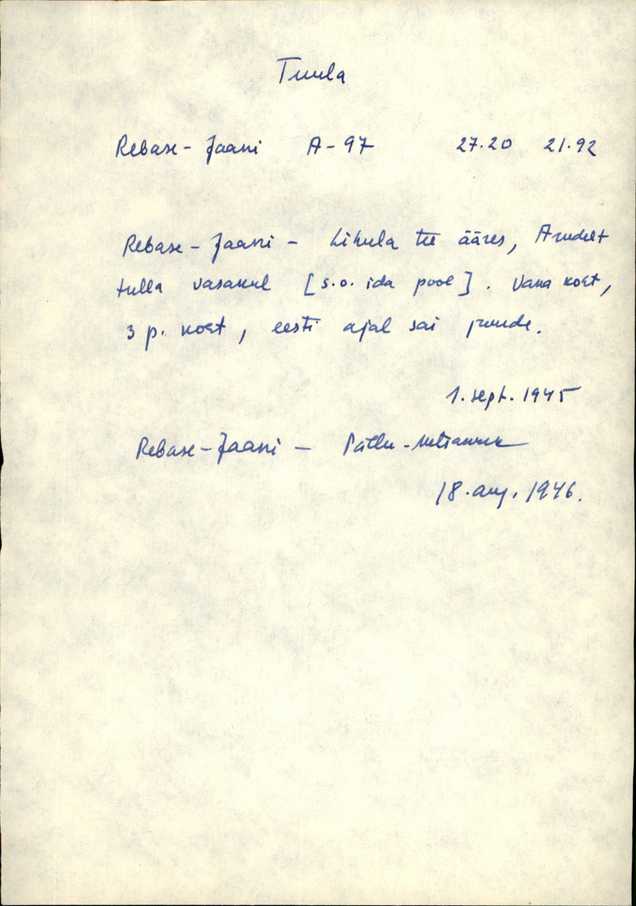 Tuula
Rebase-Jaani A-97 27.20 21.92
Rebase-Jaani - Lihula tee ääres, Arudelt
tulla vasakul [s.o. ida pool]. Vana koht,
3 p. koht, eesti ajal sai juurde.
1. sept. 1945
Rebase-Jaani -
18. aug. 1946.